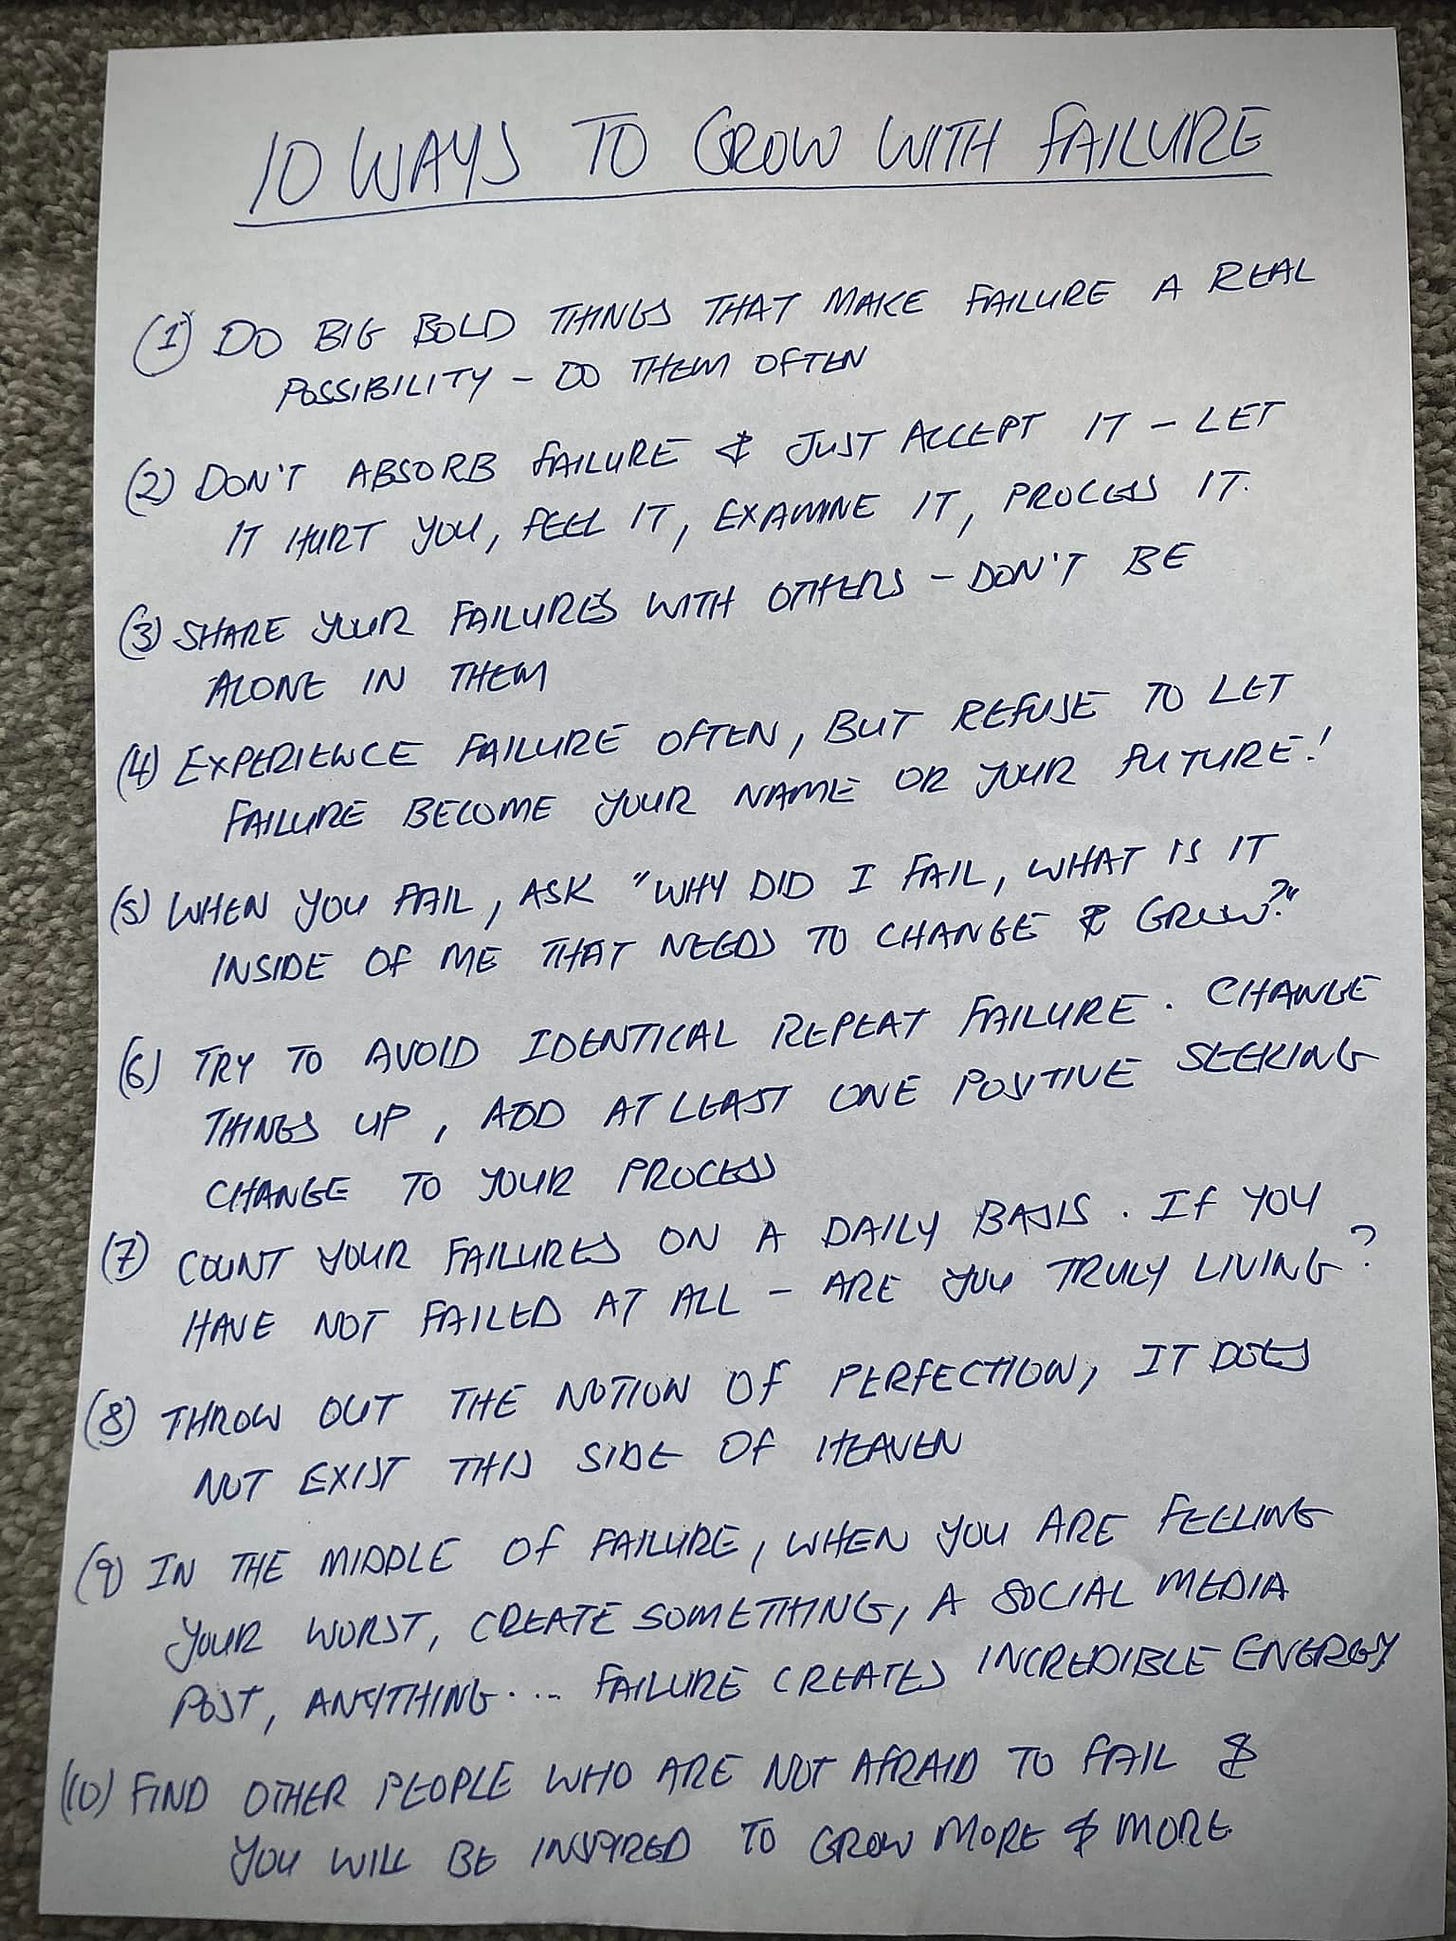 10 WAYS TO GROW WITH FAILURE
(1) DO BIG BOLD THINGS THAT MAKE FAILURE A REAL
POSSIBILITY - DO THEM OFTEN
(2) DON'T ABSORB FAILURE & JUST ACCEPT IT - LET
IT HURT YOU, FEEL IT, EXAMINE IT, PROCESS IT.
(3) SHARE YOUR FAILURES WITH OTHERS - DON'T BE
ALONE IN THEM
(4) EXPERIENCE FAILURE OFTEN, BUT REFUSE TO LET
FAILURE BECOME YOUR NAME OR YOUR FUTURE!
(5) WHEN YOU FAIL, ASK "WHY DID I FAIL, WHAT IS IT
INSIDE OF ME THAT NEEDS TO CHANGE & GROW?"
(6) TRY TO AVOID IDENTICAL REPEAT FAILURE. CHANGE
THINGS UP, ADD AT LEAST ONE POSITIVE SEEKING
CHANGE TO YOUR PROCESS
(7) COUNT YOUR FAILURES ON A DAILY BASIS. IF YOU
HAVE NOT FAILED AT ALL - ARE YOU TRULY LIVING?
(8) THROW OUT THE NOTION OF PERFECTION, IT DOES
NOT EXIST THIS SIDE OF HEAVEN
(9) IN THE MIDDLE OF FAILURE, WHEN YOU ARE FEELING
YOUR WORST, CREATE SOMETHING, A SOCIAL MEDIA
POST, ANYTHING.... FAILURE CREATES INCREDIBLE ENERGY
(10) FIND OTHER PEOPLE WHO ARE NOT AFRAID TO FAIL &
YOU WILL BE INSPIRED TO GROW MORE & MORE